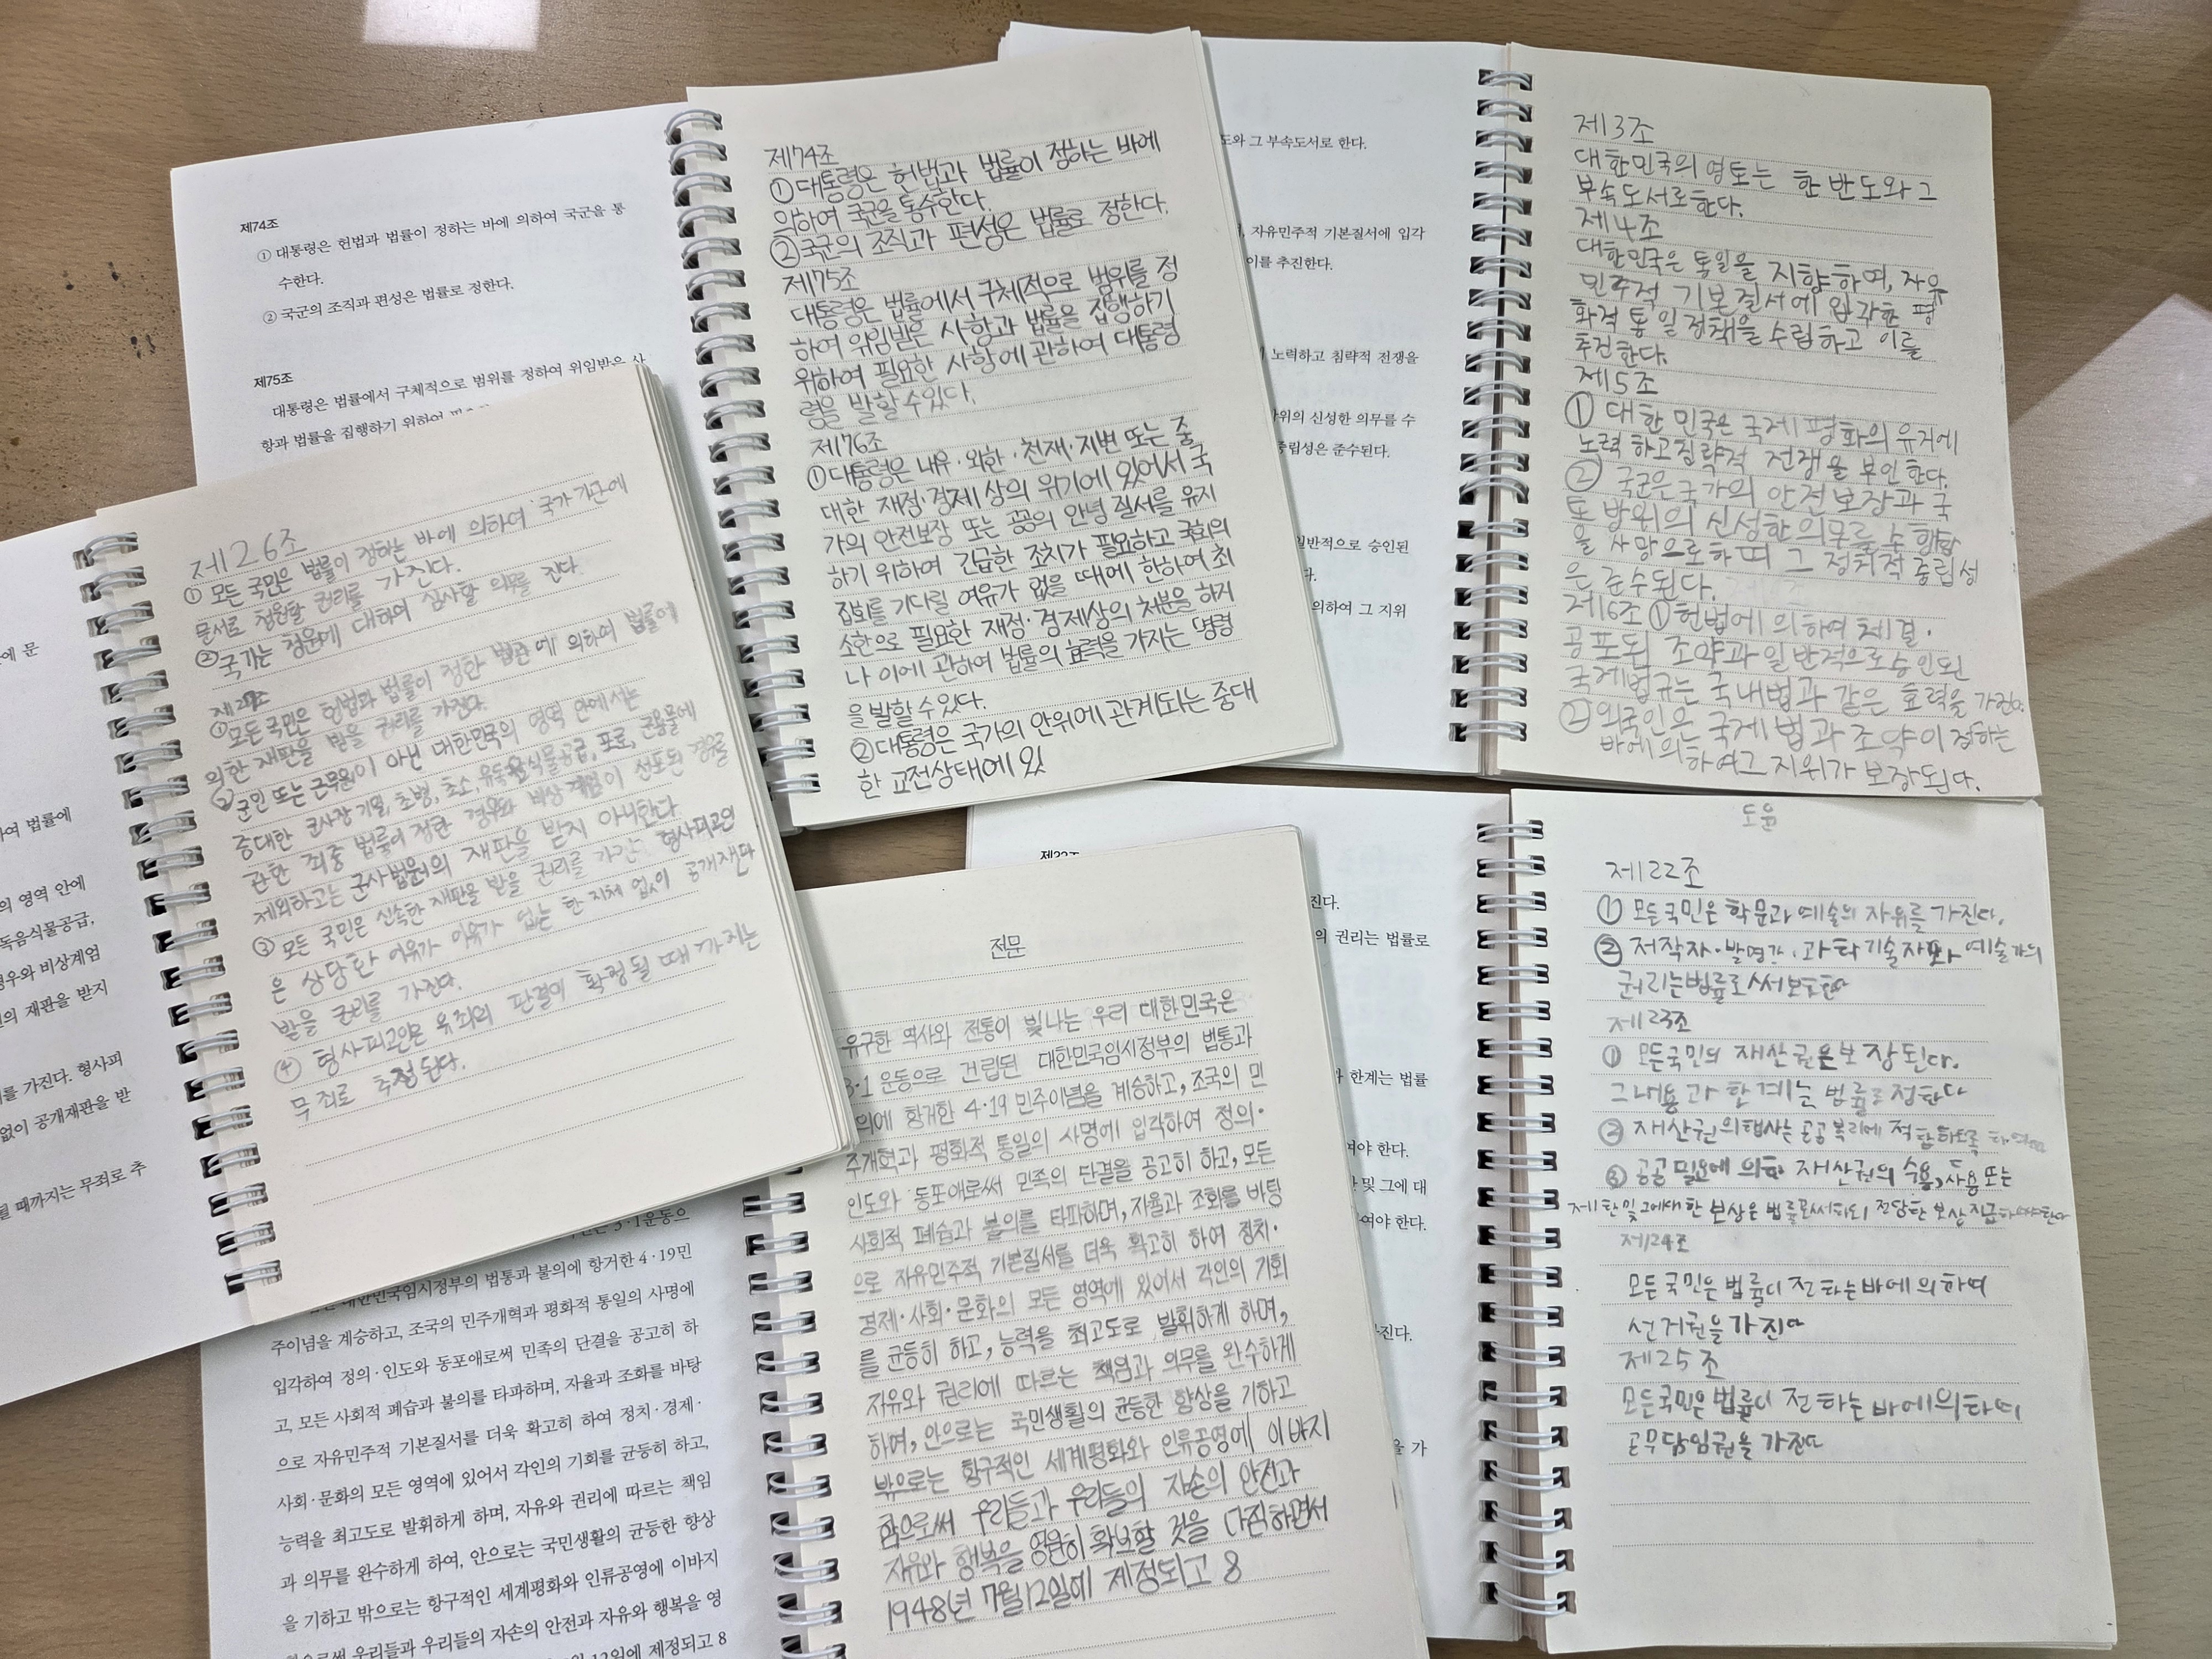 제74조
① 대통령은 헌법과 법률이 정하는 바에 의하여 국군을 통
수한다.
② 국군의 조직과 편성은 법률로 정한다.
제75조
대통령은 법률에서 구체적으로 범위를 정하여 위임받은 사
항과 법률을 집행하기 위하여
제74조
①대통령은 헌법과 법률이 정하는 바에
의하여 국군을 통수한다.
②국군의 조직과 편성은 법률로 정한다.
제75조
대통령은 법률에서 구체적으로 범위를 정
하여 위임받은 사항과 법률을 집행하기
위하여 필요한 사항에 관하여 대통령
령을 발할 수 있다.
제76조
①대통령은 내유·외한·천재·지변 또는 중
대한 재정·경제 상의 위기에 있어서 국
가의 안전보장 또는 공공의 안녕 질서를 유지
하기 위하여 긴급한 조치가 필요하고 국회의
집회를 기다릴 여유가 없을 때에 한하여 최
소한으로 필요한 재정·경제상의 처분을 하거
나 이에 관하여 법률의 효력을 가지는 명령
을 발할 수 있다.
②대통령은 국가의 안위에 관계되는 중대
한 교전상태에 있
도와 그 부속도서로 한다.
자유민주적 기본질서에 입각
이를 추진한다.
노력하고 침략적 전쟁을
방위의 신성한 의무를 수
중립성은 준수된다.
일반적으로 승인된
다.
의하여 그 지위
제3조
대한민국의 영토는 한반도와 그
부속도서로 한다.
제4조
대한민국은 통일을 지향하며, 자유
민주적 기본질서에 입각한 평
화적 통일정책을 수립하고 이를
추진한다.
제5조
① 대한민국은 국제평화의 유지에
노력하고 침략적 전쟁을 부인한다.
② 국군은 국가의 안전보장과 국
토방위의 신성한 의무를 수행함
을 사명으로 하며 그 정치적 중립성
은 준수된다.
제6조 ① 헌법에 의하여 체결·
공포된 조약과 일반적으로 승인된
국제법규는 국내법과 같은 효력을 가진다.
② 외국인은 국제법과 조약이 정하는
바에 의하여 그 지위가 보장된다.
에 문
하여 법률에
의 영역 안에
독음식물공급,
경우와 비상계엄
의 재판을 받지
를 가진다. 형사피
없이 공개재판을 받
될 때까지는 무죄로 추
제26조
① 모든 국민은 법률이 정하는 바에 의하여 국가기관에
문서로 청원할 권리를 가진다.
② 국가는 청원에 대하여 심사할 의무를 진다.
제27조
① 모든 국민은 헌법과 법률이 정한 법관에 의하여 법률에
의한 재판을 받을 권리를 가진다.
② 군인 또는 군무원이 아닌 대한민국의 영역 안에서는
중대한 군사상 기밀, 초병, 초소, 유독음식물공급, 포로, 군용물에
관한 죄중 법률이 정한 경우와 비상계엄이 선포된 경우를
제외하고는 군사법원의 재판을 받지 아니한다
③ 모든 국민은 신속한 재판을 받을 권리를 가진다 형사피고인
은 상당한 이유가 없는 한 지체 없이 공개재판
받을 권리를 가진다.
④ 형사피고인은 유죄의 판결이 확정될 때까지는
무죄로 추정된다.
3·1운동으
대한민국임시정부의 법통과 불의에 항거한 4·19민
주이념을 계승하고, 조국의 민주개혁과 평화적 통일의 사명에
입각하여 정의·인도와 동포애로써 민족의 단결을 공고히 하
고, 모든 사회적 폐습과 불의를 타파하며, 자율과 조화를 바탕
으로 자유민주적 기본질서를 더욱 확고히 하여 정치·경제·
사회·문화의 모든 영역에 있어서 각인의 기회를 균등히 하고,
능력을 최고도로 발휘하게 하며, 자유와 권리에 따르는 책임
과 의무를 완수하게 하여, 안으로는 국민생활의 균등한 향상
을 기하고 밖으로는 항구적인 세계평화와 인류공영에 이바지
함으로써 우리들과 우리들의 자손의 안전과 자유와 행복을 영
12일에 제정되고 8
전문
유구한 역사와 전통이 빛나는 우리 대한민국은
3·1 운동으로 건립된 대한민국임시정부의 법통과
의에 항거한 4·19 민주이념을 계승하고, 조국의 민
주개혁과 평화적 통일의 사명에 입각하여 정의·
인도와 동포애로써 민족의 단결을 공고히 하고, 모든
사회적 폐습과 불의를 타파하며, 자율과 조화를 바탕
으로 자유민주적 기본질서를 더욱 확고히 하여 정치·
경제·사회·문화의 모든 영역에 있어서 각인의 기회
를 균등히 하고, 능력을 최고도로 발휘하게 하며,
자유와 권리에 따르는 책임과 의무를 완수하게
하여, 안으로는 국민생활의 균등한 향상을 기하고
밖으로는 항구적인 세계평화와 인류공영에 이바지
함으로써 우리들과 우리들의 자손의 안전과
자유와 행복을 영원히 확보할 것을 다짐하면서
1948년 7월 12일에 제정되고 8
제22조
진다.
의 권리는 법률로
한계는 법률
여야 한다.
및 그에 대
여야 한다.
진다.
을 가
도윤
제22조
① 모든 국민은 학문과 예술의 자유를 가진다.
② 저작자·발명가·과학기술자와 예술가의
권리는 법률로써 보호한다
제23조
① 모든 국민의 재산권은 보장된다.
그 내용과 한계는 법률로 정한다
② 재산권의 행사는 공공복리에 적합하도록 하여야
③ 공공필요에 의한 재산권의 수용, 사용 또는
제한 및 그에 대한 보상은 법률로써 하되 정당한 보상 지급하여야한다
제24조
모든 국민은 법률이 정하는 바에 의하여
선거권을 가진다
제25조
모든 국민은 법률이 정하는 바에 의하여
공무담임권을 가진다